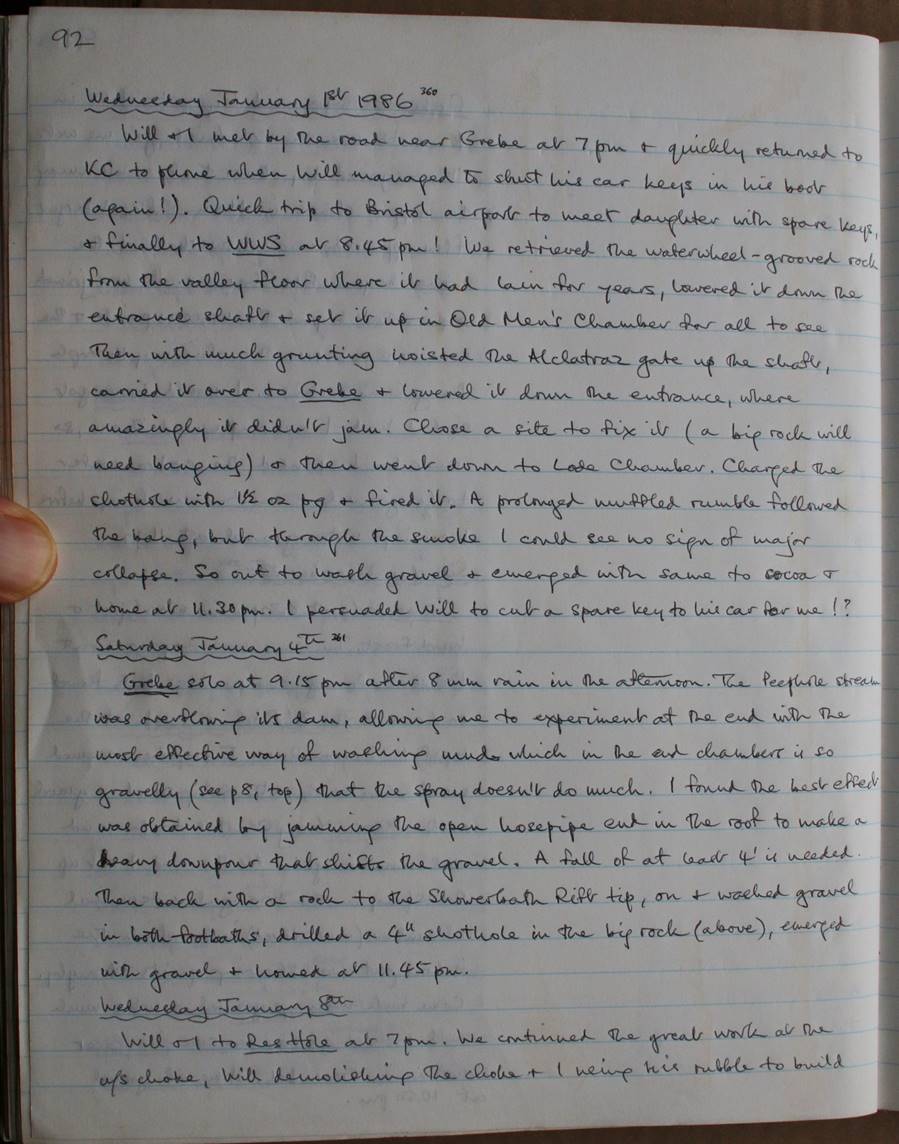 92
Wednesday January 1st 1986 360
Will + I met by the road near Grebe at 7pm + quickly returned to
KC to phone when Will managed to shut his car keys in his boot
(again!). Quick trip to Bristol airport to meet daughter with spare keys,
+ finally to WWS at 8.45pm! We retrieved the waterwheel-grooved rock
from the valley floor where it had lain for years, lowered it down the
entrance shaft + set it up in Old Men's Chamber for all to see
Then with much grunting hoisted the Alclatraz gate up the shaft,
carried it over to Grebe + lowered it down the entrance, where
amazingly it didn't jam. Chose a site to fix it (a big rock will
need banging) + then went down to Late Chamber. Charged the
shothole with 1½ oz pg + fired it. A prolonged muffled rumble followed
the bang, but through the smoke I could see no sign of major
collapse. So out to wash gravel + emerged with same to cocoa +
home at 11.30pm. I persuaded Will to cut a spare key to his car for me!?
Saturday January 4th 361
Grebe solo at 9.15pm after 8mm rain in the afternoon. The Peephole stream
was overflowing its dam, allowing me to experiment at the end with the
most effective way of washing mud which in the end chambers is so
gravelly (see p8, top) that the spray doesn't do much. I found the best effect
was obtained by jamming the open hosepipe end in the roof to make a
heavy downpour that shifts the gravel. A fall of at least 4' is needed.
Then back with a rock to the Showerbath Rift tip, on + washed gravel
in both footbaths, drilled a 4" shothole in the big rock (above), emerged
with gravel + homed at 11.45pm.
Wednesday January 8th
Will + I to Res Hole at 7pm. We continued the great work at the
u/s choke, Will demolishing the choke + I using his rubble to build